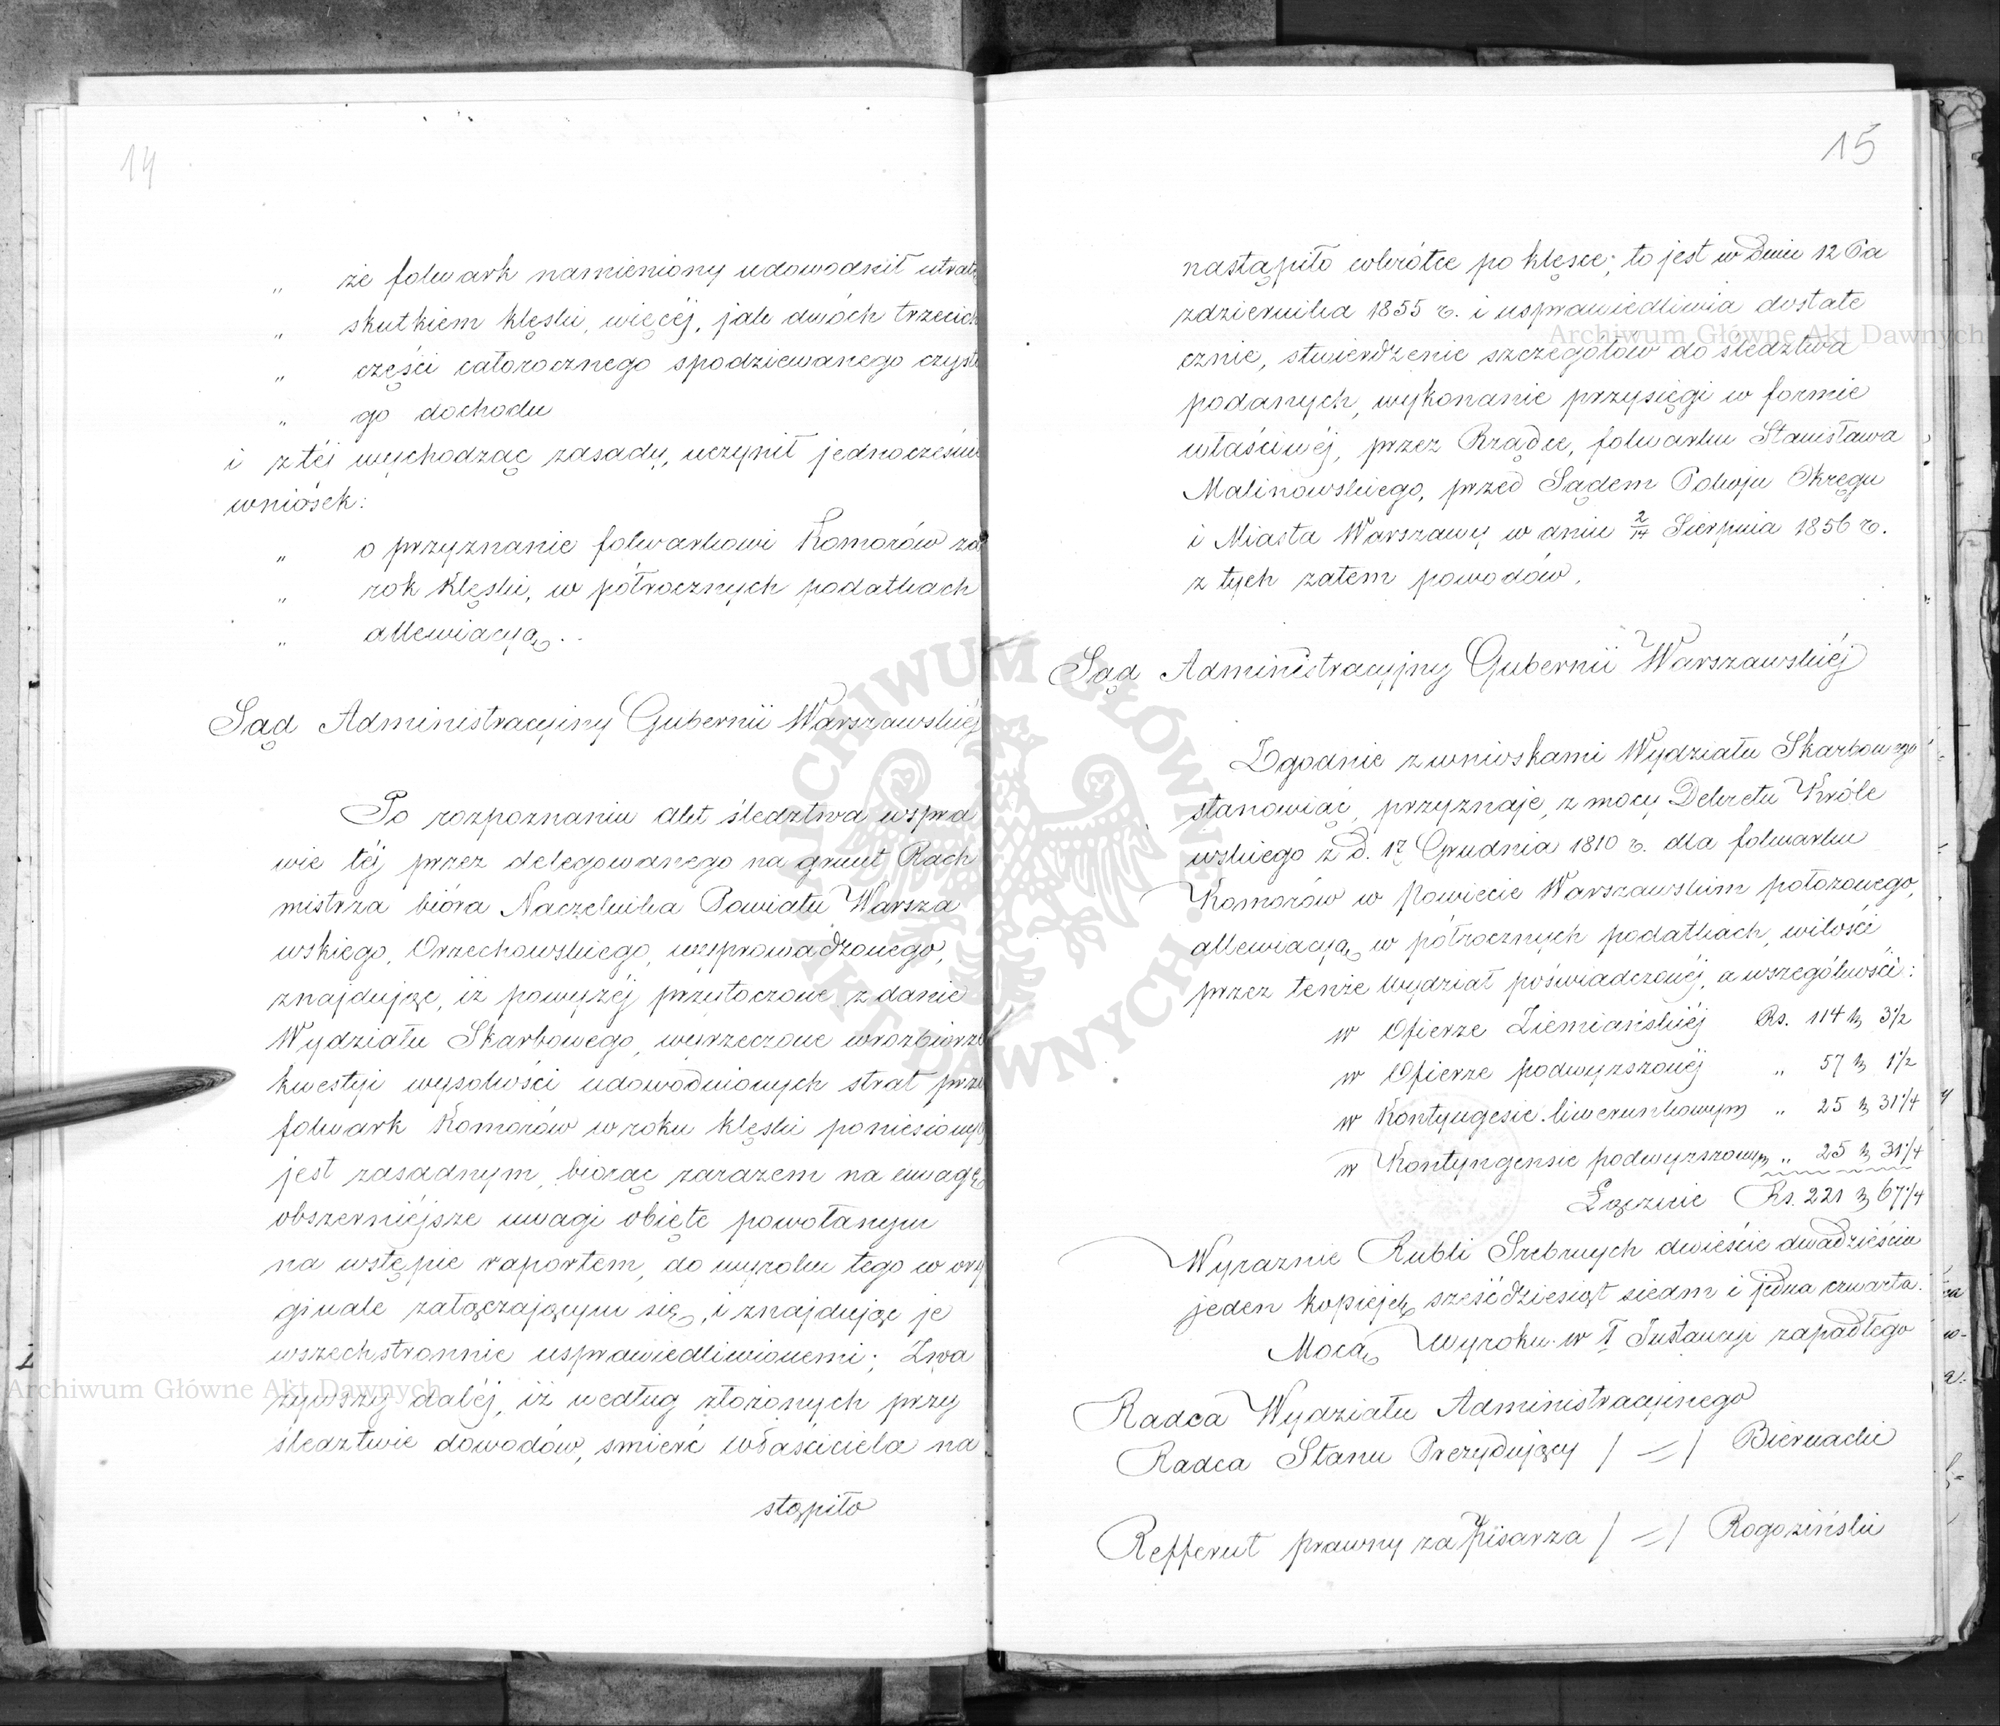 14
„ że folwark namieniony udowodnił utratę
„ skutkiem klęski, więcéj, jak dwóch trzecich
„ części całorocznego spodziewanego czyste
„ go dochodu
i z téj wychodząc zasady, uczynił jednocześnie
wniosek:
„ o przyznanie folwarkowi Komorów za
„ rok klęski, w półrocznych podatkach
„ allewiacyą.
Sąd Administracyjny Gubernii Warszawskiéj
Po rozpoznaniu akt śledztwa wspra
wie téj przez delegowanego na grunt Rach
mistrza bióra Naczelnika Powiatu Warsza
wskiego, Orzechowskiego, wyprowadzonego,
znajdując, iż powyżéj przytoczone zdanie
Wydziału Skarbowego, wyrzeczone wrozbiorze
kwestyi wysokości udowodnionych strat przez
folwark Komorów wroku klęski poniesionych
jest zasadnym, biorąc zarazem na uwagę
obszerniéjsze uwagi objęte powołanym
na wstępie raportem, do wyroku tego w ory
ginale załączającym się, i znajdując je
wszechstronnie usprawiedliwionemi; Zwa
żywszy daléj, iż według złożonych przy
śledztwie dowodów, śmierć właściciela na
stąpiło
15
nastąpiło wkrótce po klęsce; to jest w Dniu 12 Pa
zdziernika 1855 r. i usprawiedliwia dostate
cznie, stwierdzenie szczegółów do śledztwa
podanych, wykonanie przysięgi w formie
właściwéj, przez Rządcę, folwarku Stanisława
Malinowskiego, przed Sądem Pokoju Okręgu
i Miasta Warszawy w dniu 2/14 Sierpnia 1856 r.
z tych zatem powodów.
Sąd Administracyjny Gubernii Warszawskiéj
Zgodnie z wnioskami Wydziału Skarbowego
stanowiąc, przyznaje, z mocy Dekretu Króle
wskiego z d. 17 Grudnia 1810 r. dla folwarku
Komorów w Powiecie Warszawskim położonego,
allewiacyą w półrocznych podatkach, wilości
przez tenże Wydział poświadczonéj, a wszególności:
w Ofierze Ziemiańskiéj Rs. 114 k 3 1/2
w Ofierze podwyższonéj „ 57 k 1 1/2
w Kontyngesie liwerunkowym „ 25 k 31 1/4
w Kontyngensie podwyższowym „ 25 k 31 1/4
Łącznie Rs. 221 k 67 1/4
Wyraznie Rubli Srebrnych dwieście dwadzieścia
jeden kopiejek sześćdziesiąt siedm i jedna czwarta.
Mocą Wyroku w I Instancyi zapadłego
Radca Wydziału Administracyjnego
Radca Stanu Prezydujący /—/ Biernacki
Refferent prawny za Pisarza /—/ Rogoziński
Archiwum Główne Akt Dawnych
Archiwum Główne Akt Dawnych
ARCHIWUM GŁÓWNE AKT DAWNYCH